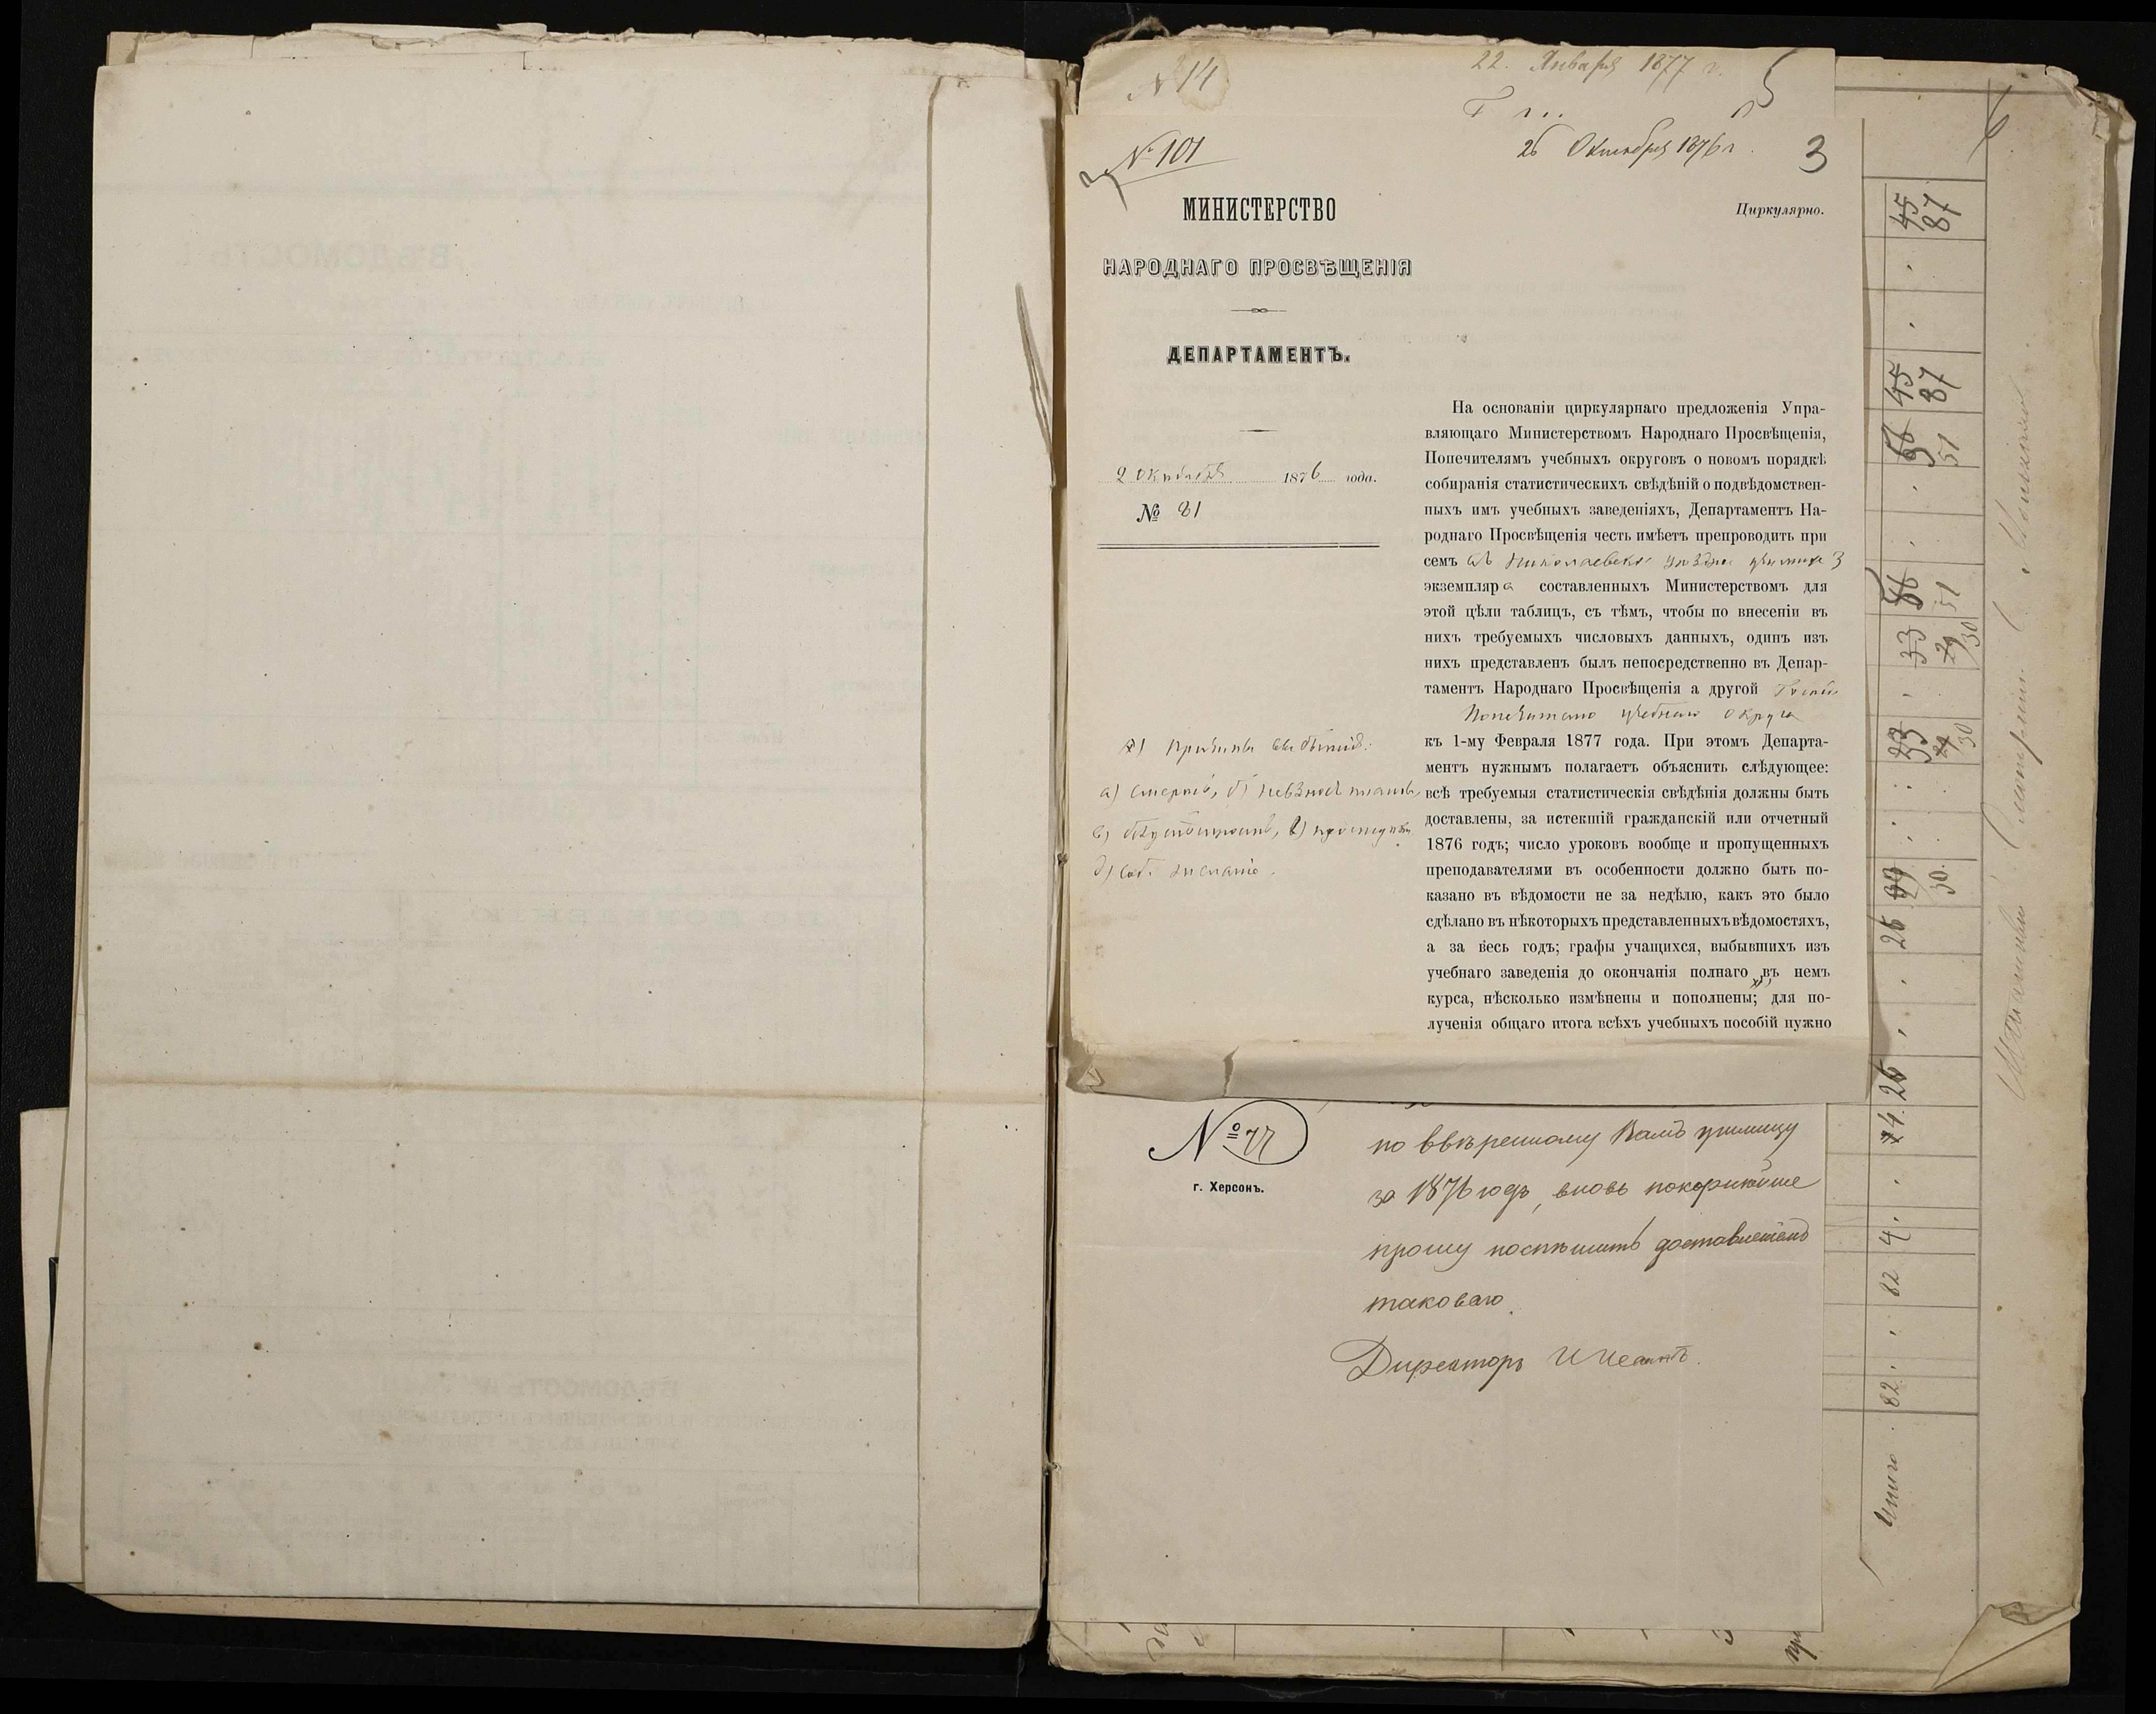 № 14
22. Января 1877 г.
5
№ 101
26 Октября 1876 г.
3
МИНИСТЕРСТВО
НАРОДНАГО ПРОСВѢЩЕНІЯ
ДЕПАРТАМЕНТЪ.
2 Октября 1876 года.
№ 81
Циркулярно.
На основаніи циркулярнаго предложенія Упра-
вляющаго Министерствомъ Народнаго Просвѣщенія,
Попечителямъ учебныхъ округовъ о новомъ порядкѣ
собиранія статистическихъ свѣдѣній о подвѣдомствен-
ныхъ имъ учебныхъ заведеніяхъ, Департаментъ На-
роднаго Просвѣщенія честь имѣетъ препроводить при
семъ въ Николаевское уѣздное училище 3
экземпляра составленныхъ Министерствомъ для
этой цѣли таблицъ, съ тѣмъ, чтобы по внесеніи въ
нихъ требуемыхъ числовыхъ данныхъ, одинъ изъ
нихъ представленъ былъ непосредственно въ Депар-
таментъ Народнаго Просвѣщенія а другой
Попечителю учебнаго округа
къ 1-му Февраля 1877 года. При этомъ Департа-
ментъ нужнымъ полагаетъ объяснить слѣдующее:
всѣ требуемыя статистическія свѣдѣнія должны быть
доставлены, за истекшій гражданскій или отчетный
1876 годъ; число уроковъ вообще и пропущенныхъ
преподавателями въ особенности должно быть по-
казано въ вѣдомости не за недѣлю, какъ это было
сдѣлано въ нѣкоторыхъ представленныхъ вѣдомостяхъ,
а за весь годъ; графы учащихся, выбывшихъ изъ
учебнаго заведенія до окончанія полнаго въ немъ
курса, нѣсколько измѣнены и пополнены; для по-
лученія общаго итога всѣхъ учебныхъ пособій нужно
х) Причины выбытія:
а) смерть, б) невзносъ платы,
д) соб. желанію.
№ 77
г. Херсонъ.
по ввѣренному Вамъ училищу
за 1876 годъ, вновь покорнѣйше
прошу поспѣшить доставленіемъ
таковаго.
Директоръ
Итого 82 82 4 74 26 26 30 33 30 33 30 56 51 56 51 45 87 45 87